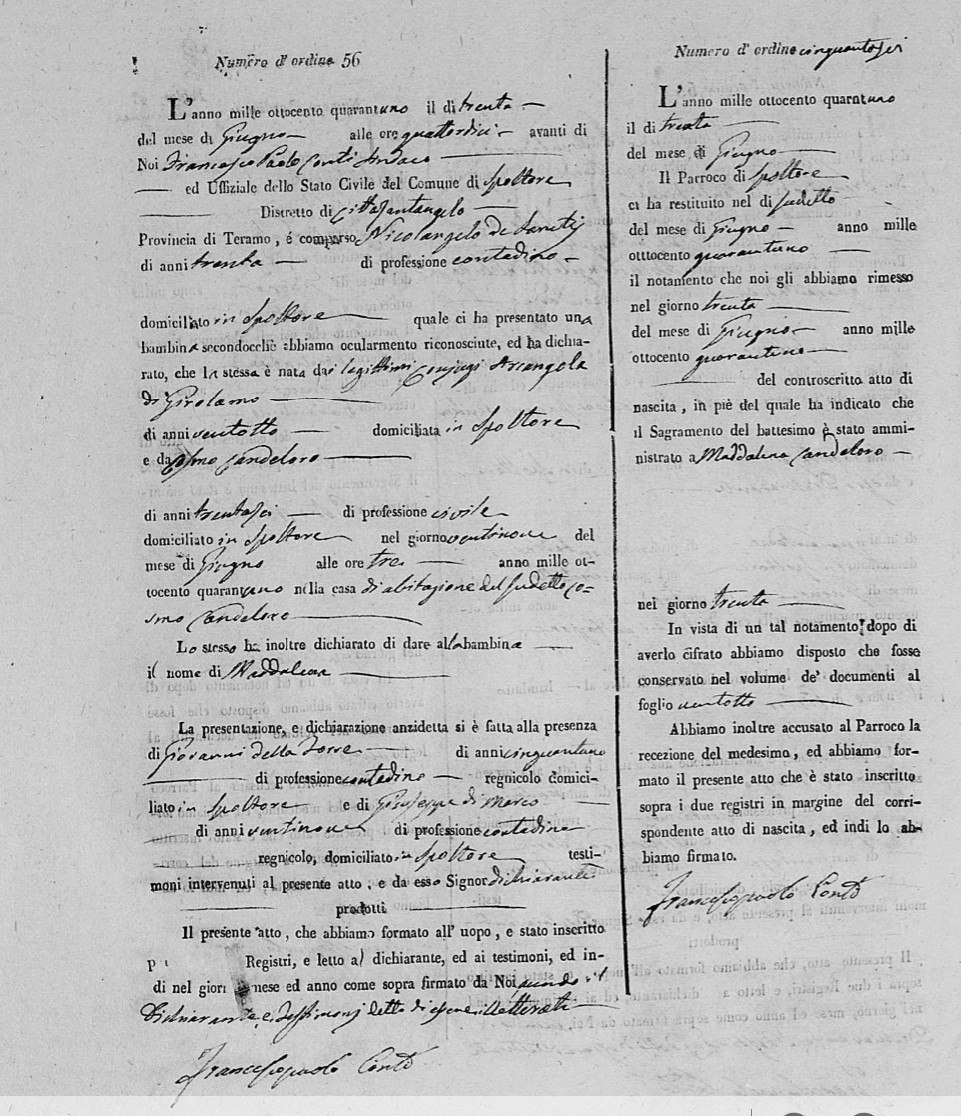 Numero d' ordine 56
L'anno mille ottocento quarantuno il dì trenta
del mese di Giugno alle ore quattordici avanti di
Noi Francesco Paolo Conti Sindaco
ed Uffiziale dello Stato Civile del Comune di Spoltore
Distretto di Cittàsantangelo
Provincia di Teramo, é comparso Nicolangelo de Sanctis
di anni trenta di professione contadino
domiciliato in Spoltore quale ci ha presentato una
bambina secondocchè abbiamo ocularmento riconosciute, ed ha dichia-
rato, che la stessa è nata dai legittimi conjugi Arcangela
di Girolamo
di anni ventotto domiciliata in Spoltore
e da Cosmo Candeloro
di anni trentasei di professione civile
domiciliato in Spoltore nel giorno ventinove del
mese di Giugno alle ore tre anno mille ot-
tocento quarantuno nella casa di abitazione del sudetto Co-
smo Candeloro
Lo stesso ha inoltre dichiarato di dare alla bambina
il nome di Maddalena
La presentazione, e dichiarazione anzidetta si è fatta alla presenza
di Giovanni della Torre di anni cinquantuno
di professione contadino regnicolo domici-
liato in Spoltore e di Giuseppe di Marco
di anni ventinove di professione contadino
regnicolo, domiciliato in Spoltore testi-
moni intervenuti al presente atto, e da esso Signor dichiarante
prodotti
Il presente atto, che abbiamo formato all' uopo, e stato inscritto
Registri, e letto al dichiarante, ed ai testimoni, ed in-
di nel giorno mese ed anno come sopra firmato da Noi avendo il
Dichiarante, e testimonj detto di essere illetterati
Francescopaolo Conti
Numero d' ordine cinquantasei
L'anno mille ottocento quarantuno
il di trenta
del mese di Giugno
Il Parroco di Spoltore
ci ha restituito nel di sudetto
del mese di Giugno anno mille
otttocento quarantuno
il notamento che noi gli abbiamo rimesso
nel giorno trenta
del mese di Giugno anno mille
ottocento quarantuno
del controscritto atto di
nascita, in piè del quale ha indicato che
il Sagramento del battesimo è stato ammi-
nistrato a Maddalena Candeloro
nel giorno trenta
In vista di un tal notamento, dopo di
averlo cifrato abbiamo disposto che fosse
conservato nel volume de' documenti al
foglio ventotto
Abbiamo inoltre accusato al Parroco la
recezione del medesimo, ed abbiamo for-
mato il presente atto che è stato inscritto
sopra i due registri in margine del corri-
spondente atto di nascita, ed indi lo ab-
biamo firmato.
Francescopaolo Conti